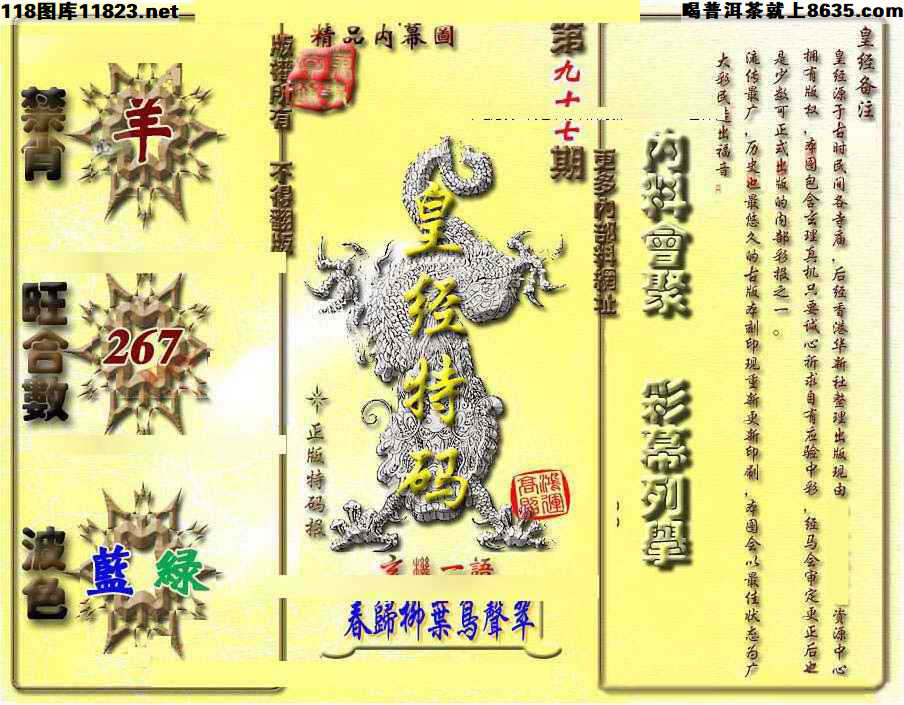 118图库11823.net
喝普洱茶就上8635.com
精品内幕圖
第九十七期
版權所有 不得翻版
禁肖
羊
旺合數
267
波色
藍 綠
皇经特码
正版特码报
鴻運高照
玄機一語
春歸柳葉鳥聲翠
更多內部料網址
內料會聚 彩幕列舉
皇经备注
皇经源于古时民间各寺庙,后经香港华新社整理出版现由 资源中心
拥有版权,本图包含玄理真机只要诚心祈求自有应验中彩,经马会审定更正后也
是少数可正式出版的内部彩报之一。
流传最广,历史也最悠久的古版本刻印现重新更新印刷,本图会以最佳状态为广
大彩民送出福音